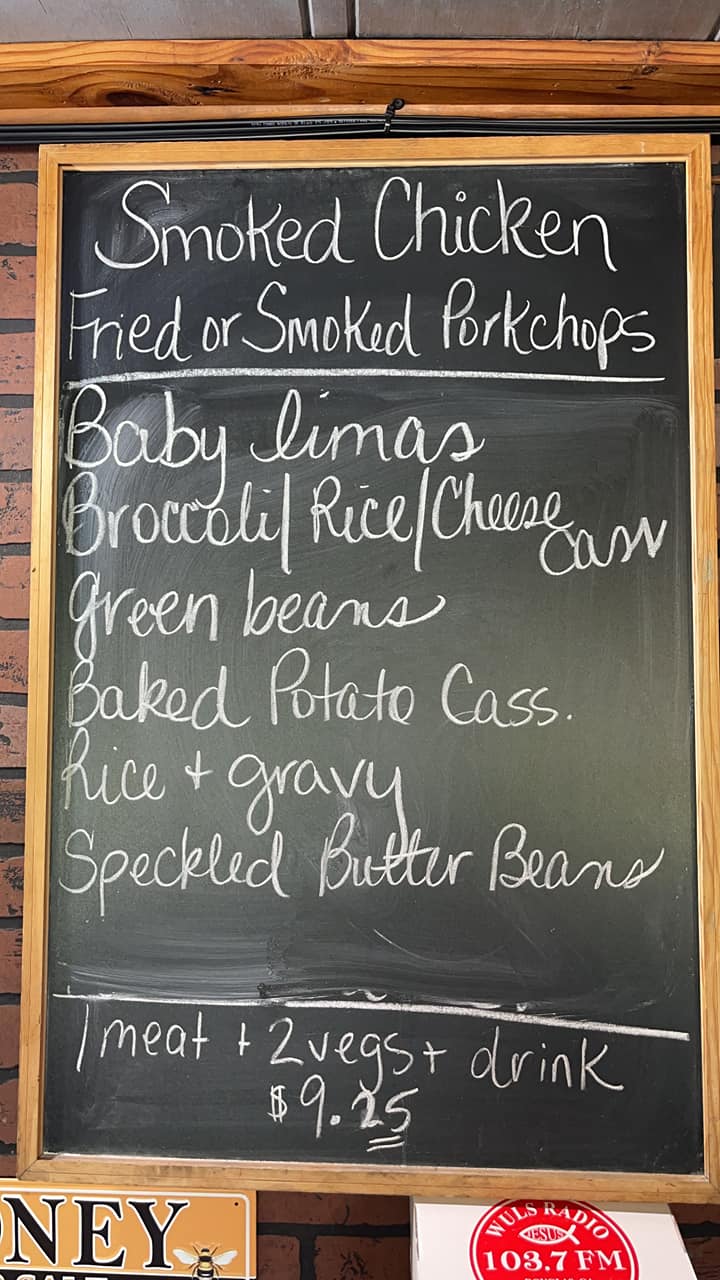 Smoked Chicken
Fried or Smoked Porkchops
Baby limas
Broccoli/Rice/Cheese
Cass
green beans
Baked Potato Cass.
Rice + gravy
Speckled Butter Beans
1 meat + 2 vegs + drink
$9.25
NEY
WULS RADIO
JESUS
103.7 FM